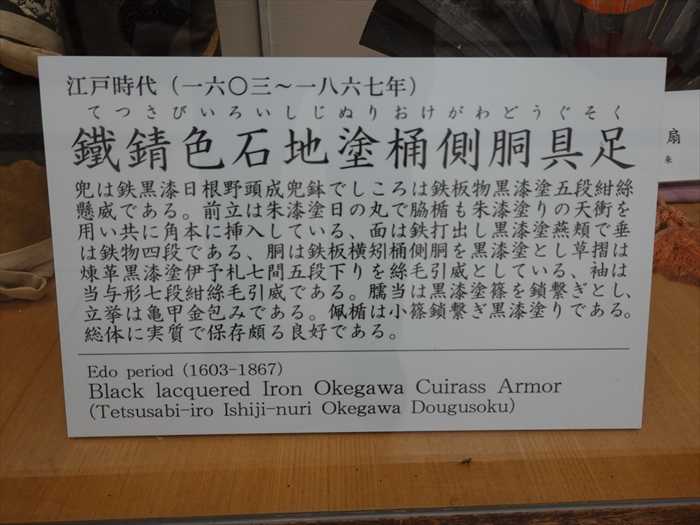 江戸時代（一六〇三～一八六七年）
てつさびいろいしじぬりおけがわどうぐそく
鐵錆色石地塗桶側胴具足
兜は鉄黒漆日根野頭成兜鉢でしころは鉄板物黒漆塗五段紺絲
懸威である。前立は朱漆塗日の丸で脇楯も朱漆塗りの天衝を
用い共に角本に挿入している、面は鉄打出し黒漆塗燕頬で垂
は鉄物四段である、胴は鉄板横矧桶側胴を黒漆塗とし草摺は
煉革黒漆塗伊予札七間五段下りを絲毛引威としている、袖は
当与形七段紺絲毛引威である。臑当は黒漆塗篠を鎖繋ぎとし、
立挙は亀甲金包みである。佩楯は小篠鎖繋ぎ黒漆塗りである。
総体に実質で保存頗る良好である。
Edo period (1603-1867)
Black lacquered Iron Okegawa Cuirass Armor
(Tetsusabi-iro Ishiji-nuri Okegawa Dougusoku)
扇